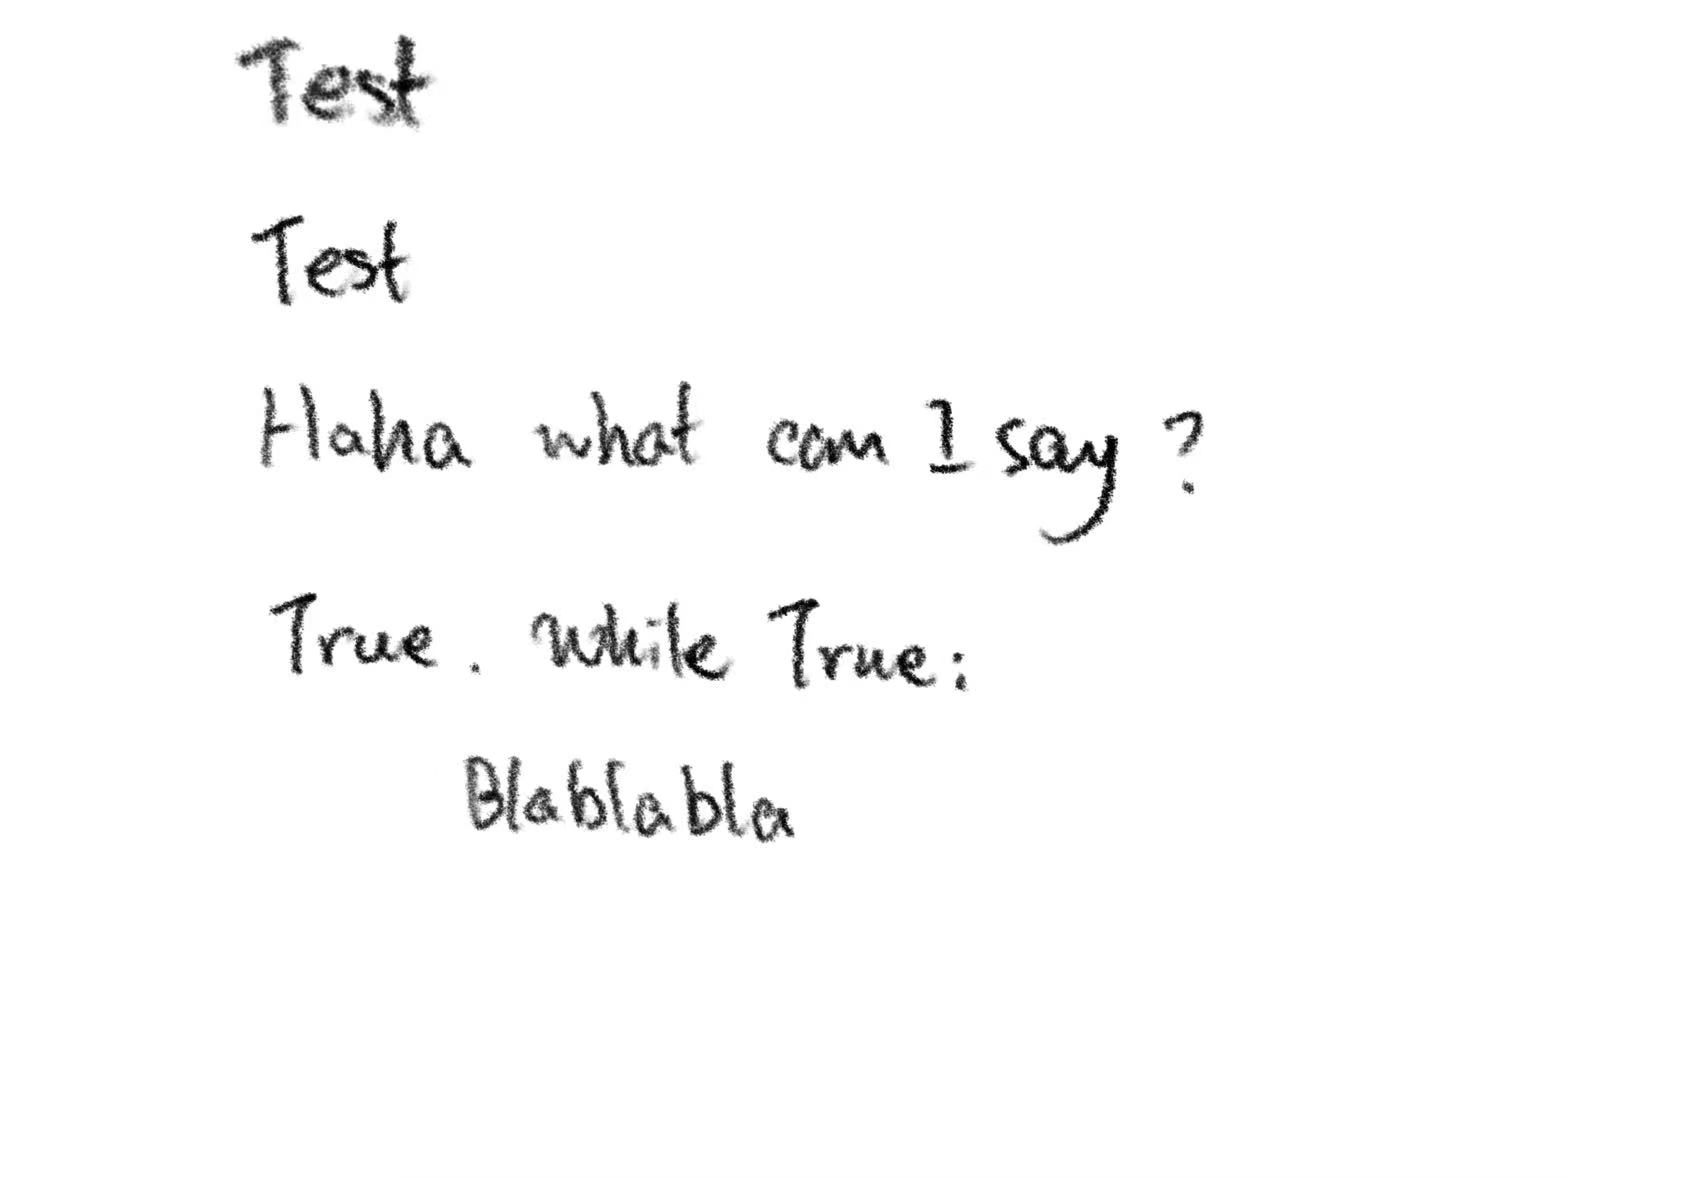 Test
Test
Haha what can I say ?
True . While True :
Blablabla